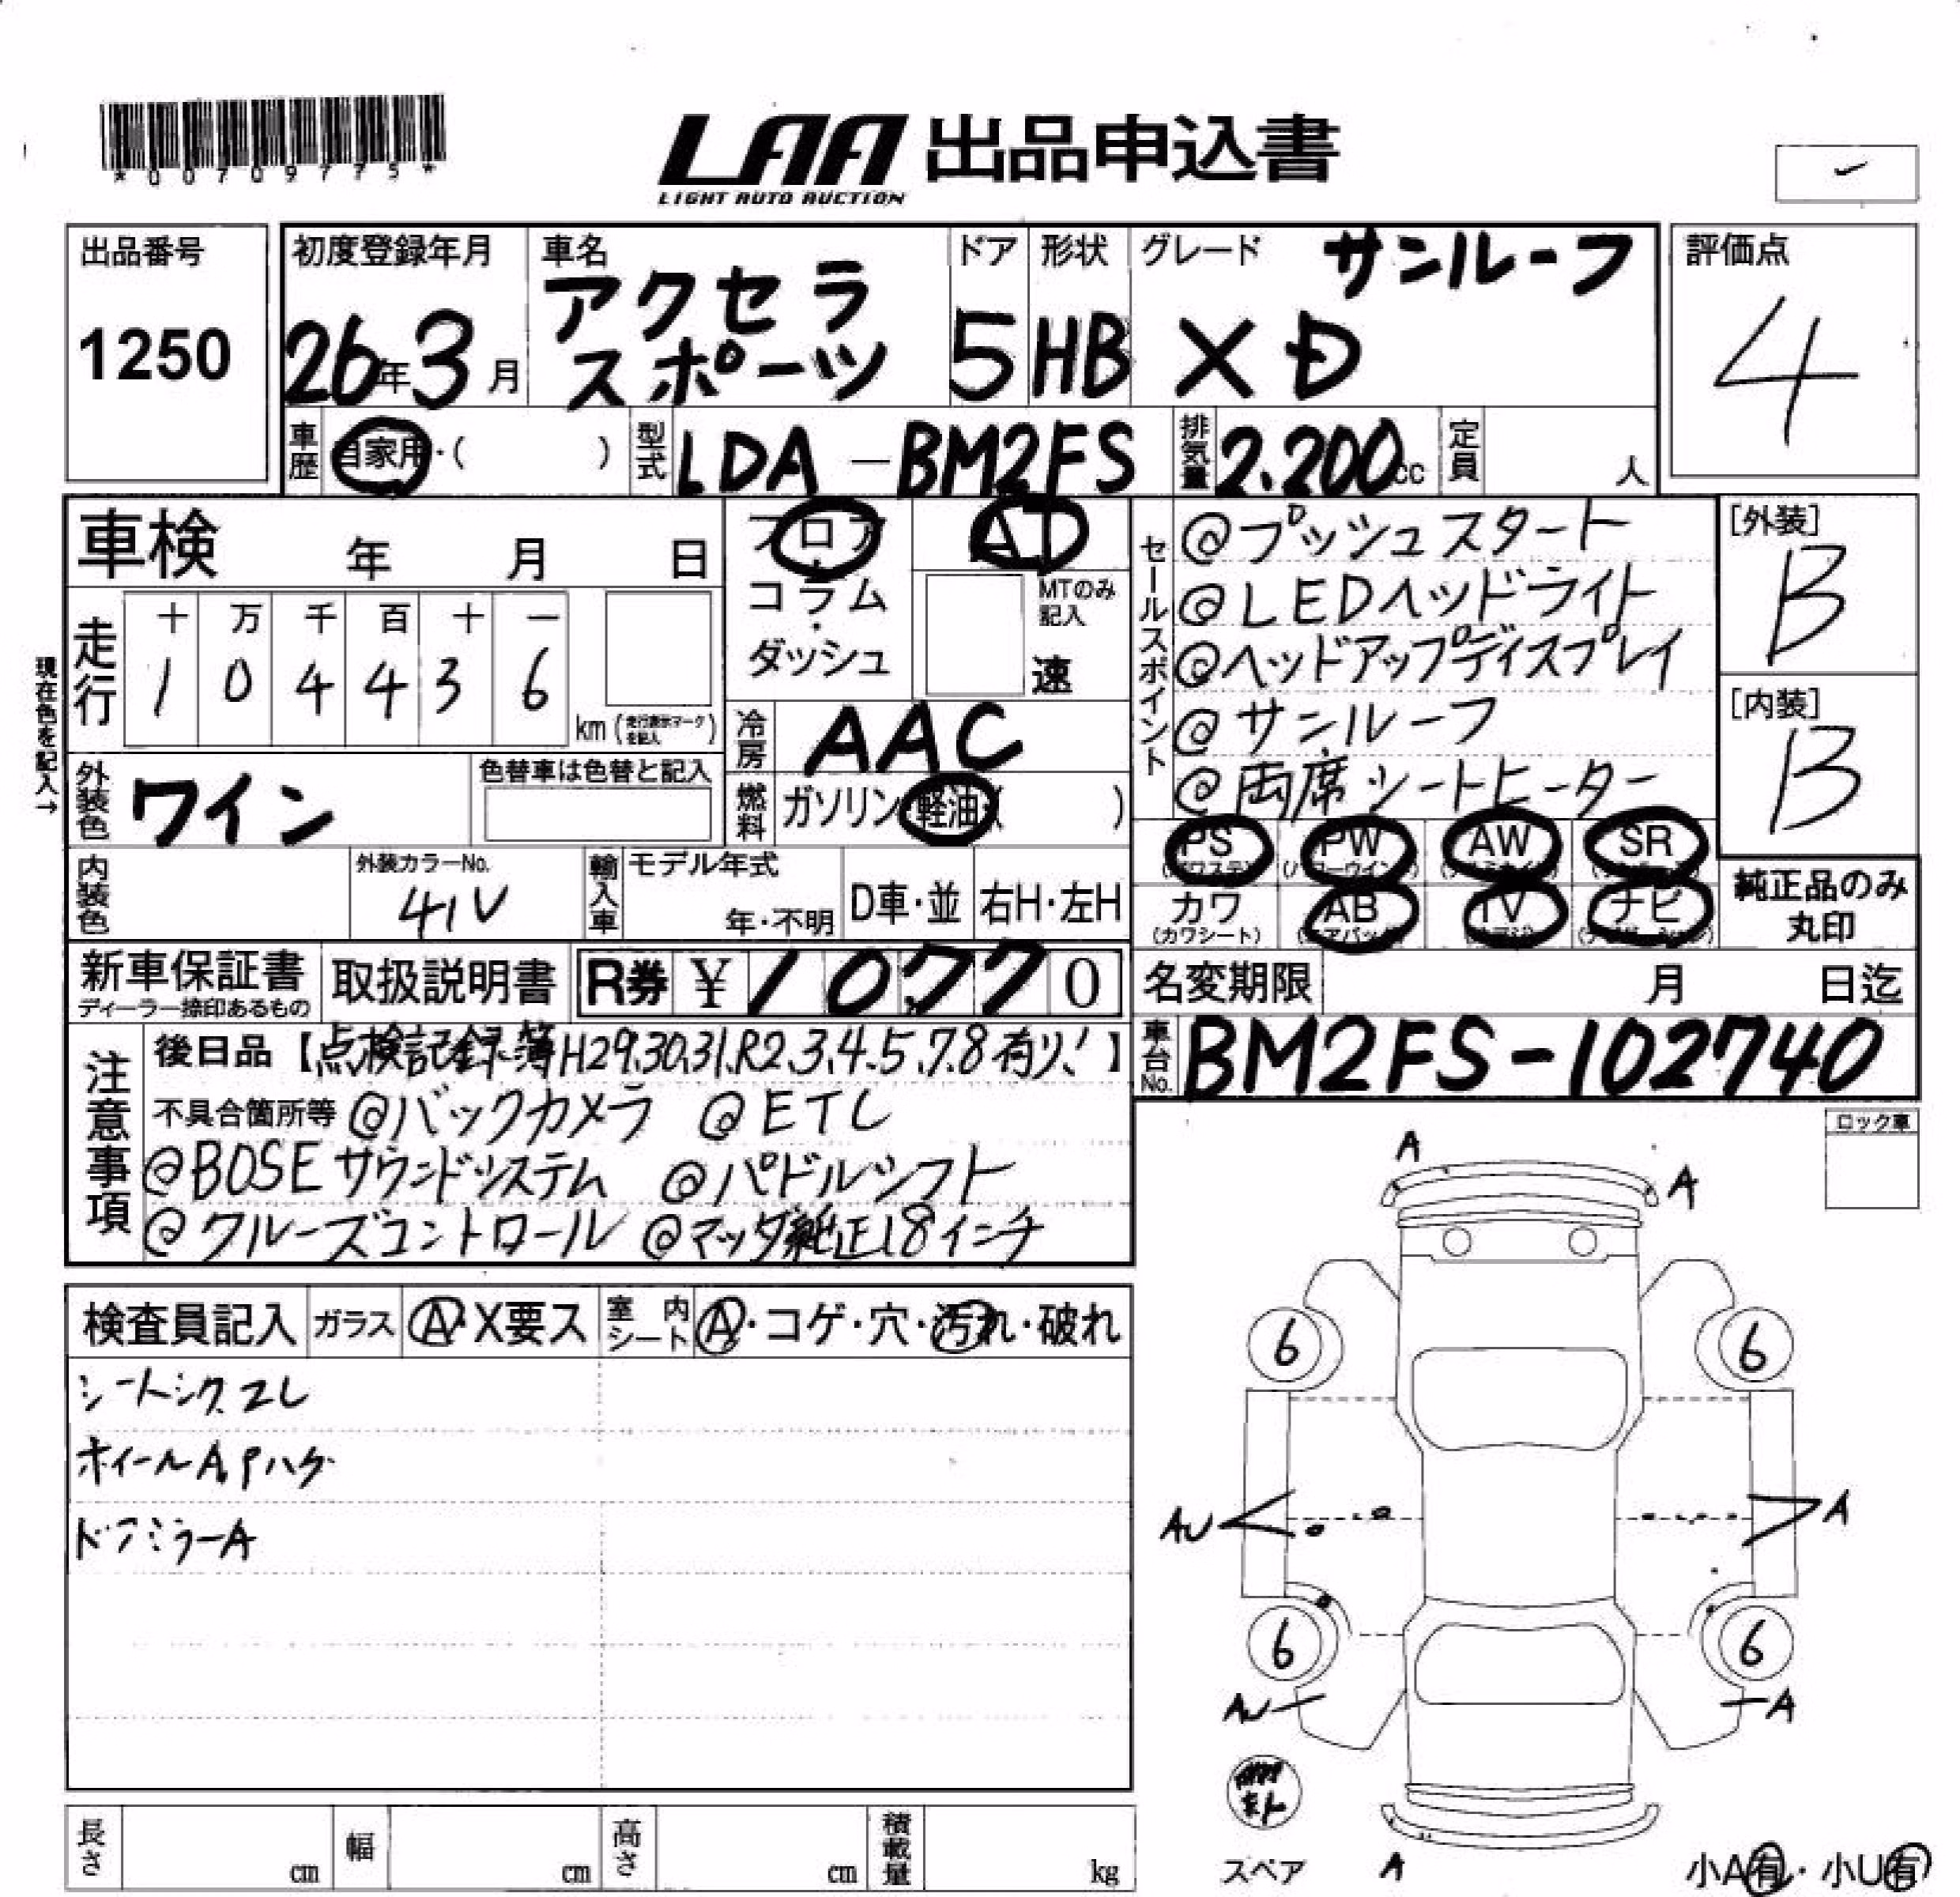 *00709775*
LAA 出品申込書
LIGHT AUTO AUCTION
出品番号
1250
初度登録年月
26年3月
車名
アクセラ
スポーツ
ドア
5
形状
HB
グレード サンルーフ
XD
評価点
4
車歴 自家用・( )
型式 LDA-BM2FS
排気量 2.200cc
定員 人
車検 年 月 日
フロア
コラム
・
ダッシュ
AT
MTのみ
記入
速
現在色を記入→
走行
十 万 千 百 十 一
1 0 4 4 3 6
km (走行表示マークを記入)
冷房 AAC
外装色 ワイン
色替車は色替と記入
燃料 ガソリン・軽油・( )
内装色
外装カラーNo.
41V
輸入車
モデル年式
年・不明
D車・並
右H・左H
セールスポイント
@プッシュスタート
@LEDヘッドライト
@ヘッドアップディスプレイ
@サンルーフ
@両席シートヒーター
[外装]
B
[内装]
B
PS PW AW SR
カワ AB TV ナビ
(カワシート)
純正品のみ
丸印
新車保証書
ディーラー捺印あるもの
取扱説明書
R券 ¥ 10,770
名変期限 月 日迄
車台No. BM2FS-102740
注意事項
後日品【点検記録簿H29.30.31.R2.3.4.5.7.8有り!】
不具合箇所等 @バックカメラ @ETC
@BOSEサウンドシステム @パドルシフト
@クルーズコントロール @マツダ純正18インチ
ロック車
検査員記入 ガラス A・X要ス 室内シート A・コゲ・穴・汚れ・破れ
ホイールA,Pハゲ
ドアミラーA
A
A
6 6
AU A
6 6
AU A
スペア
A
小A有・小U有
長さ cm 幅 cm 高さ cm 積載量 kg